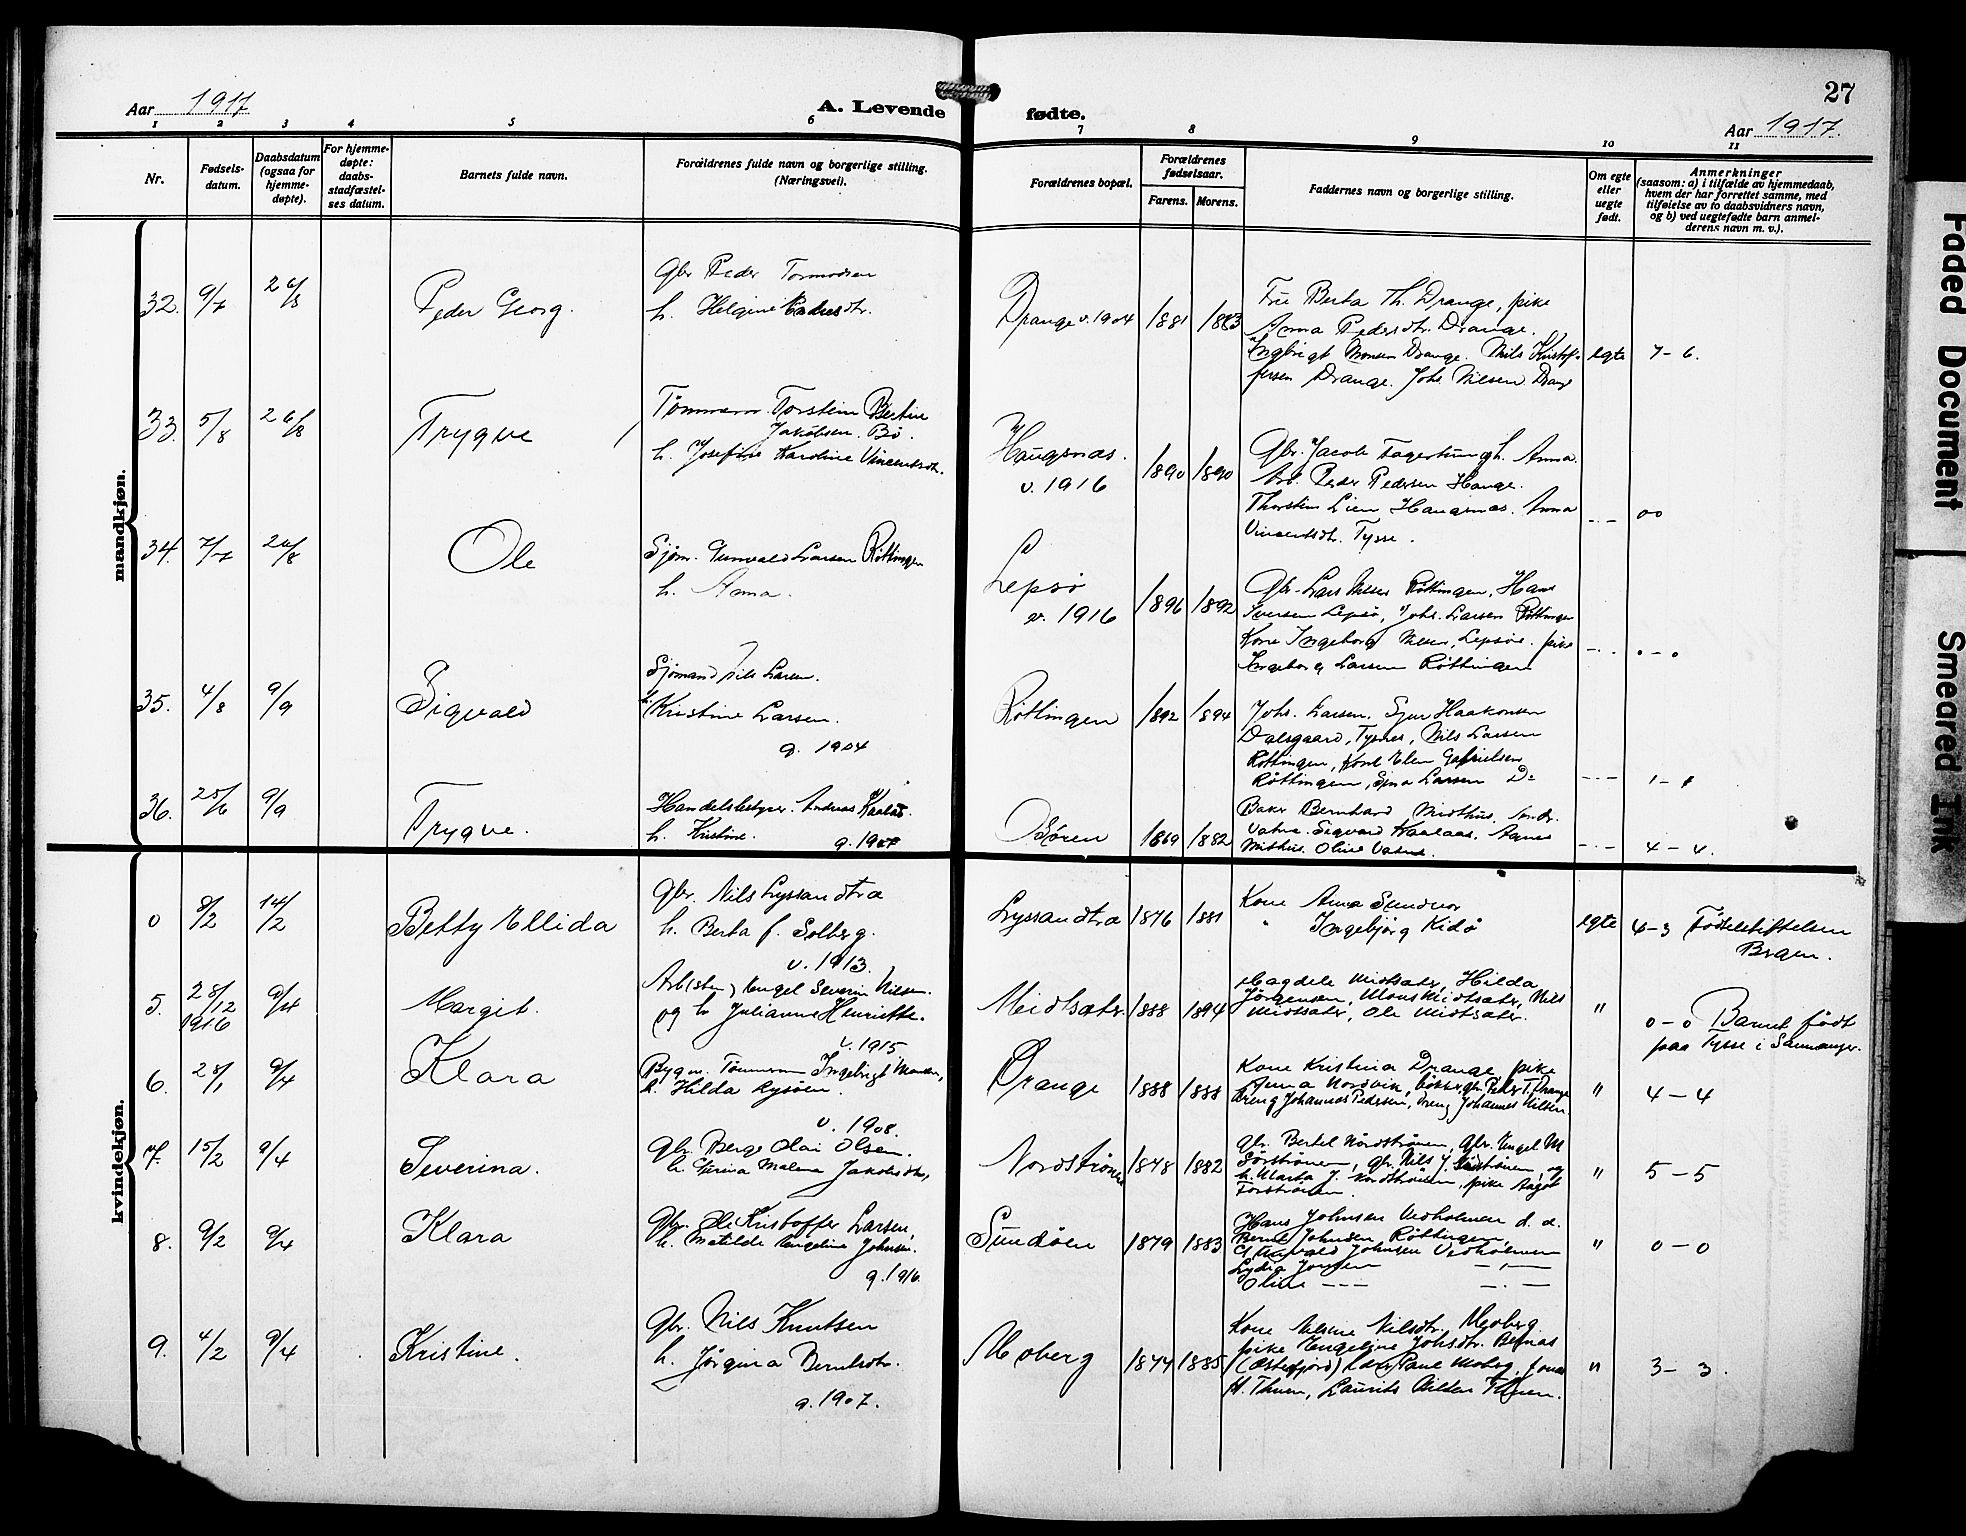 27
Aar 1917
A. Levende
fødte.
Aar 1917.
1 2 3 4 5 6 7 8 9 10 11
Nr.
Fødsels-
datum.
Daabsdatum
(ogsaa for
hjemme-
døpte).
For hjemme-
døpte:
daabs-
stadfæstel-
ses datum.
Barnets fulde navn.
Forældrenes fulde navn og borgerlige stilling.
(Næringsvei).
Forældrenes bopæl.
Forældrenes
fødselsaar.
Farens. Morens.
Faddernes navn og borgerlige stilling.
Om egte
eller
uegte
født.
Anmerkninger
(saasom: a) i tilfælde av hjemmedaab,
hvem der har forrettet samme, med
tilføielse av to daabsvidners navn,
og b) ved uegtefødte barn anmel-
derens navn m. v.).
mandkjøn.
32. 9/7 26/8 Peder Georg.
Gbr Peder Tormodsen
h. Helgine
Drange v. 1904 1881 1883
Frue Berta Th. Drange, pike
Anna Pedersdtr. Drange.
Engbrigt Monsen Drange. Nils Kristof-
fersen Drange. Johs. Nilsen Drange
egte 7-6.
33. 5/8 26/8 Trygve
Tømmerm. Torstein Bertin
Jakobsen Bø.
h. Josefine Karoline Vincentsdtr.
Haugsnæs.
v. 1916 1890 1890
Gbr. Jacob h. Anna.
Arb. Peder Pedersen Hauge.
Thorstein Lien Haugsnæs. Anna
Vincentsdtr. Tysse.
-.- 00
34. 7/7 26/8 Ole
Sjøm. Gunvald Larsen Røttingen
h. Anna.
Lepsø
v. 1916 1896 1892
Gbr. Lars Nilsen Røttingen, Hans
Iversen Lepsø, Johs. Larsen Røttingen
Kone Ingeborg Nilsen, Lepsøe. pike
Ingeborg Larsen Røttingen
-.- 0-0
35. 4/8 9/9 Sigvald
Sjømand Nils Larsen.
h. Kristine Larsen.
g. 1904
Røttingen 1892 1894
Johs. Larsen. Sjur Haakonsen
Dalsgaard, Tysnes, Nils Larsen
Røttingen, Kone Elen Gabrielsen
Røttingen, Sina Larsen Do
-.- 1-1
36. 25/6 9/9 Trygve.
Handelsbetyrer. Andreas Kaalås.
h. Kristine. g. 1907
Osøren 1869 1882
Baker Bernhard Midthus. Andr.
Vatne. Sigvard Kaalaas. Agnes
Midthus. Oline Vatne.
-.- 4-4.
kvindekjøn.
0 8/2 14/2 Betty Ellida
Gbr. Nils Lyssandtræ
h. Berta f. Solberg.
v. 1913.
Lyssandtræ 1876 1881
Kone Anna Sundvor
" Ingebjørg Kidø
egte 4-3 Fødselstiftelsen
Bergen.
5. 28/12 1916 9/4 Margit.
Arb(sten) Engel Severin Nilsen.
og h Julianne Henriette.
v. 1915
Midtsæter. 1888 1894
Magdele Midtsæter, Hilda
Jørgensen, Mons Midtsæter, Nils
Midtsæter, Ole Midtsæter.
" 0-0 Barnet født
paa Tysse i Samnanger.
6. 28/1 9/4 Klara
Bygm. Tømmerm Ingebrigt Monsen,
h. Hilda Rysøen.
v. 1908.
Drange 1888 1888
Kone Kristina Drange, pike
Anna Nordvik, bøkker, gbr. Peder T. Drange
dreng Johannes Pedersen, dreng Johannes Nilsen.
" 4-4
7. 15/2 9/4 Severina.
Gbr. Berge Olai Olsen.
h. Malena Jakobsdtr.
Nordstrøno 1878 1882
Gbr. Bertel Nordstrønen, Gbr. Engel M
Sørstrønen, gbr. Nils J. Nordstrønen, og
h. Marta J. Nordstrønen, pike Aagot
" 5-5
8. 9/2 9/4 Klara
Gbr. Ole Kristoffer Larsen,
h. Matilde Engeline Johnsen.
g. 1916.
Sundøen 1879 1883
Hans Johnsen Vedholmen d. a.
Bernt Johnsen Røttingen,
Johnsen Vedholmen
Lydia -.-
Oline --- -.-
" 0-0
9. 4/2 9/4 Kristine.
Gbr. Nils Knutsen
h. Jørgina Berntsdtr.
g. 1907.
Moberg 1877 1885
Kone Nilsine Nilsdtr. Moberg
pike Engeline Johsdtr.
Moberg,
H. Thuen, Laurits Thuen.
" 3-3.
Faded Document
Smeared Ink